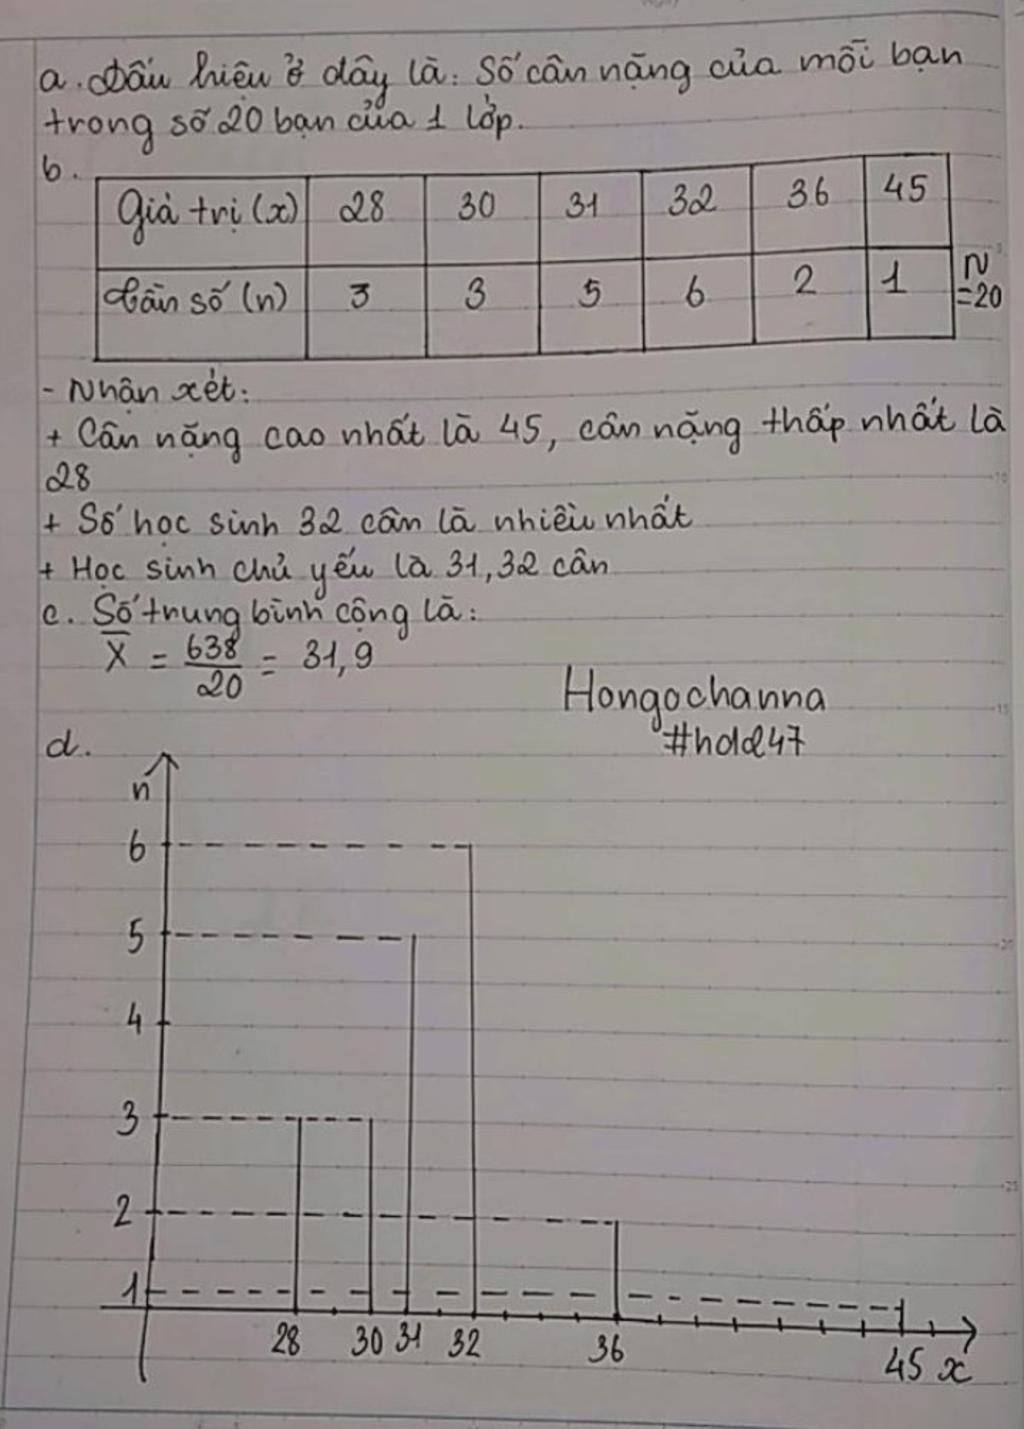 a. Dấu hiệu ở dây là: Số cân nặng của mỗi bạn
trong số 20 bạn của 1 lớp.
b.
Giá trị (x) 28 30 31 32 36 45
Tần số (n) 3 3 5 6 2 1 N =20
- Nhận xét:
+ Cân nặng cao nhất là 45, cân nặng thấp nhất là
28
+ Số học sinh 32 cân là nhiều nhất
+ Học sinh chủ yếu là 31,32 cân
c. Số trung bình cộng là:
X̄ = 638/20 = 31,9
Hongochanna
#hdd247
d.
n
6
5
4
3
2
1
28 30 31 32 36 45 x